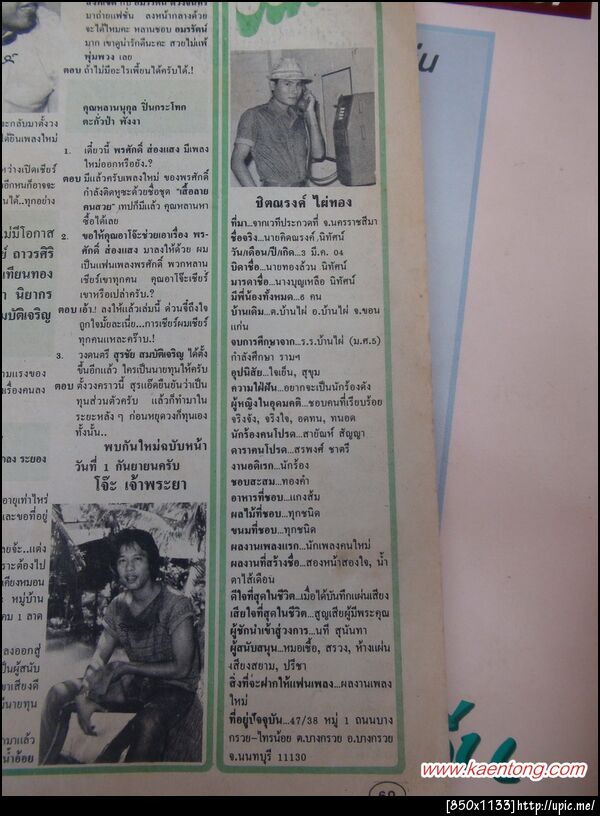 มาถ่ายแฟชั่น ลงหน้ากลางด้วย
จะได้ไหมคะ หลานชอบ อมรรัตน์
มาก เขาดูน่ารักดีนะคะ สวยไม่แพ้
พุ่มพวง เลย
ตอบ ถ้าไม่มีอะไรเพี้ยนได้ครับได้.!
คุณหลานนุกูล ปิ่นกระโทก
ตะกั่วป่า พังงา
1. เดี๋ยวนี้ พรศักดิ์ ส่องแสง มีเพลง
ใหม่ออกหรือยัง.?
ตอบ มีแล้วครับเพลงใหม่ ของพรศักดิ์
กำลังติดหูซะด้วยชื่อชุด "เสื้อลาย
คนสวย" เทปก็มีแล้ว คุณหลานหา
ซื้อได้เลย
2. ขอให้คุณอาโจ๊ะช่วยเอาเรื่อง พร-
ศักดิ์ ส่องแสง มาลงให้ด้วย ผม
เป็นแฟนเพลงพรศักดิ์ พวกหลาน
เชียร์เขาทุกคน คุณอาโจ๊ะเชียร์
เขาหรือเปล่าครับ.?
ตอบ เอ้า.! ลงให้แล้วเล่มนี้ ด่วนจี๋ถึงใจ
ถูกใจมั้ยละเนี่ย...การเชียร์ผมเชียร์
ทุกคนแหละคร๊าบ.!
3. วงดนตรี สุรชัย สมบัติเจริญ ได้ตั้ง
ขึ้นอีกแล้ว ใครเป็นนายทุนให้ครับ
ตอบ ตั้งวงคราวนี้ สุรแอ๊ดยืนยันว่าเป็น
ทุนส่วนตัวครับ แล้วก็ทำมาใน
ระยะหลัง ๆ ก่อนหยุดวงก็ทุนเอง
ทั้งนั้น..
พบกันใหม่ฉบับหน้า
วันที่ 1 กันยายนครับ
โจ๊ะ เจ้าพระยา
ชิตณรงค์ ไผ่ทอง
ที่มา...จากเวทีประกวดที่ จ.นครราชสีมา
ชื่อจริง...นายคิดณรงค์ นิทัศน์
วัน/เดือน/ปี/เกิด...3 มี.ค. 04
บิดาชื่อ...นายทองล้วน นิทัศน์
มารดาชื่อ...นางบุญเหลือ นิทัศน์
มีพี่น้องทั้งหมด...6 คน
บ้านเดิม...ต.บ้านไผ่ อ.บ้านไผ่ จ.ขอน
แก่น
จบการศึกษาจาก...ร.ร.บ้านไผ่ (ม.ศ.5)
กำลังศึกษา รามฯ
อุปนิสัย...ใจเย็น, สุขุม
ความใฝ่ฝัน...อยากจะเป็นนักร้องดัง
ผู้หญิงในอุดมคติ...ชอบคนที่เรียบร้อย
จริงจัง, จริงใจ, อดทน, ทนอด
นักร้องคนโปรด...สายัณห์ สัญญา
ดาราคนโปรด...สรพงศ์ ชาตรี
งานอดิเรก...นักร้อง
ชอบสะสม...ทองคำ
อาหารที่ชอบ...แกงส้ม
ผลไม้ที่ชอบ...ทุกชนิด
ขนมที่ชอบ...ทุกชนิด
ผลงานเพลงแรก...นักเพลงคนใหม่
ผลงานที่สร้างชื่อ...สองหน้าสองใจ, น้ำ
ตาไส้เดือน
ดีใจที่สุดในชีวิต...เมื่อได้บันทึกแผ่นเสียง
เสียใจที่สุดในชีวิต...สูญเสียผู้มีพระคุณ
ผู้ชักนำเข้าสู่วงการ...นที สุนันทา
ผู้สนับสนุน...หมอเชื้อ, สรวง, ห้างแผ่น
เสียงสยาม, ปรีชา
สิ่งที่จะฝากให้แฟนเพลง...ผลงานเพลง
ใหม่
ที่อยู่ปัจจุบัน...47/38 หมู่ 1 ถนนบาง
กรวย-ไทรน้อย ต.บางกรวย อ.บางกรวย
จ.นนทบุรี 11130
www.kaentong.com
[850x1133]http://upic.me/